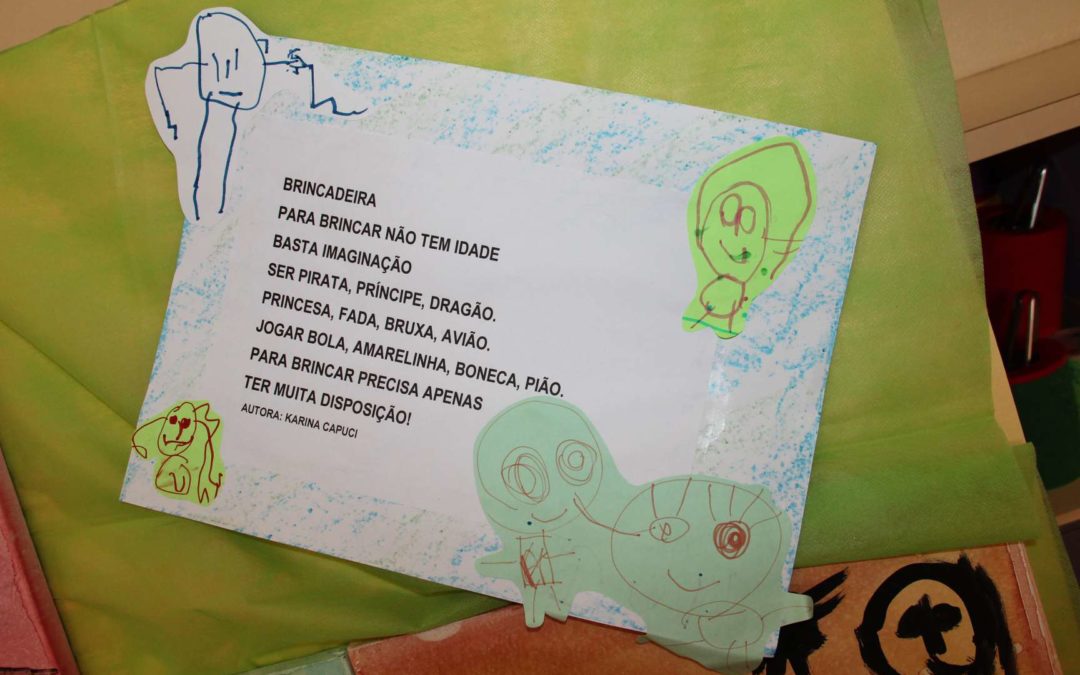 BRINCADEIRA
PARA BRINCAR NÃO TEM IDADE
BASTA IMAGINAÇÃO
SER PIRATA, PRÍNCIPE, DRAGÃO.
PRINCESA, FADA, BRUXA, AVIÃO.
JOGAR BOLA, AMARELINHA, BONECA, PIÃO.
PARA BRINCAR PRECISA APENAS
TER MUITA DISPOSIÇÃO!
AUTORA: KARINA CAPUCI